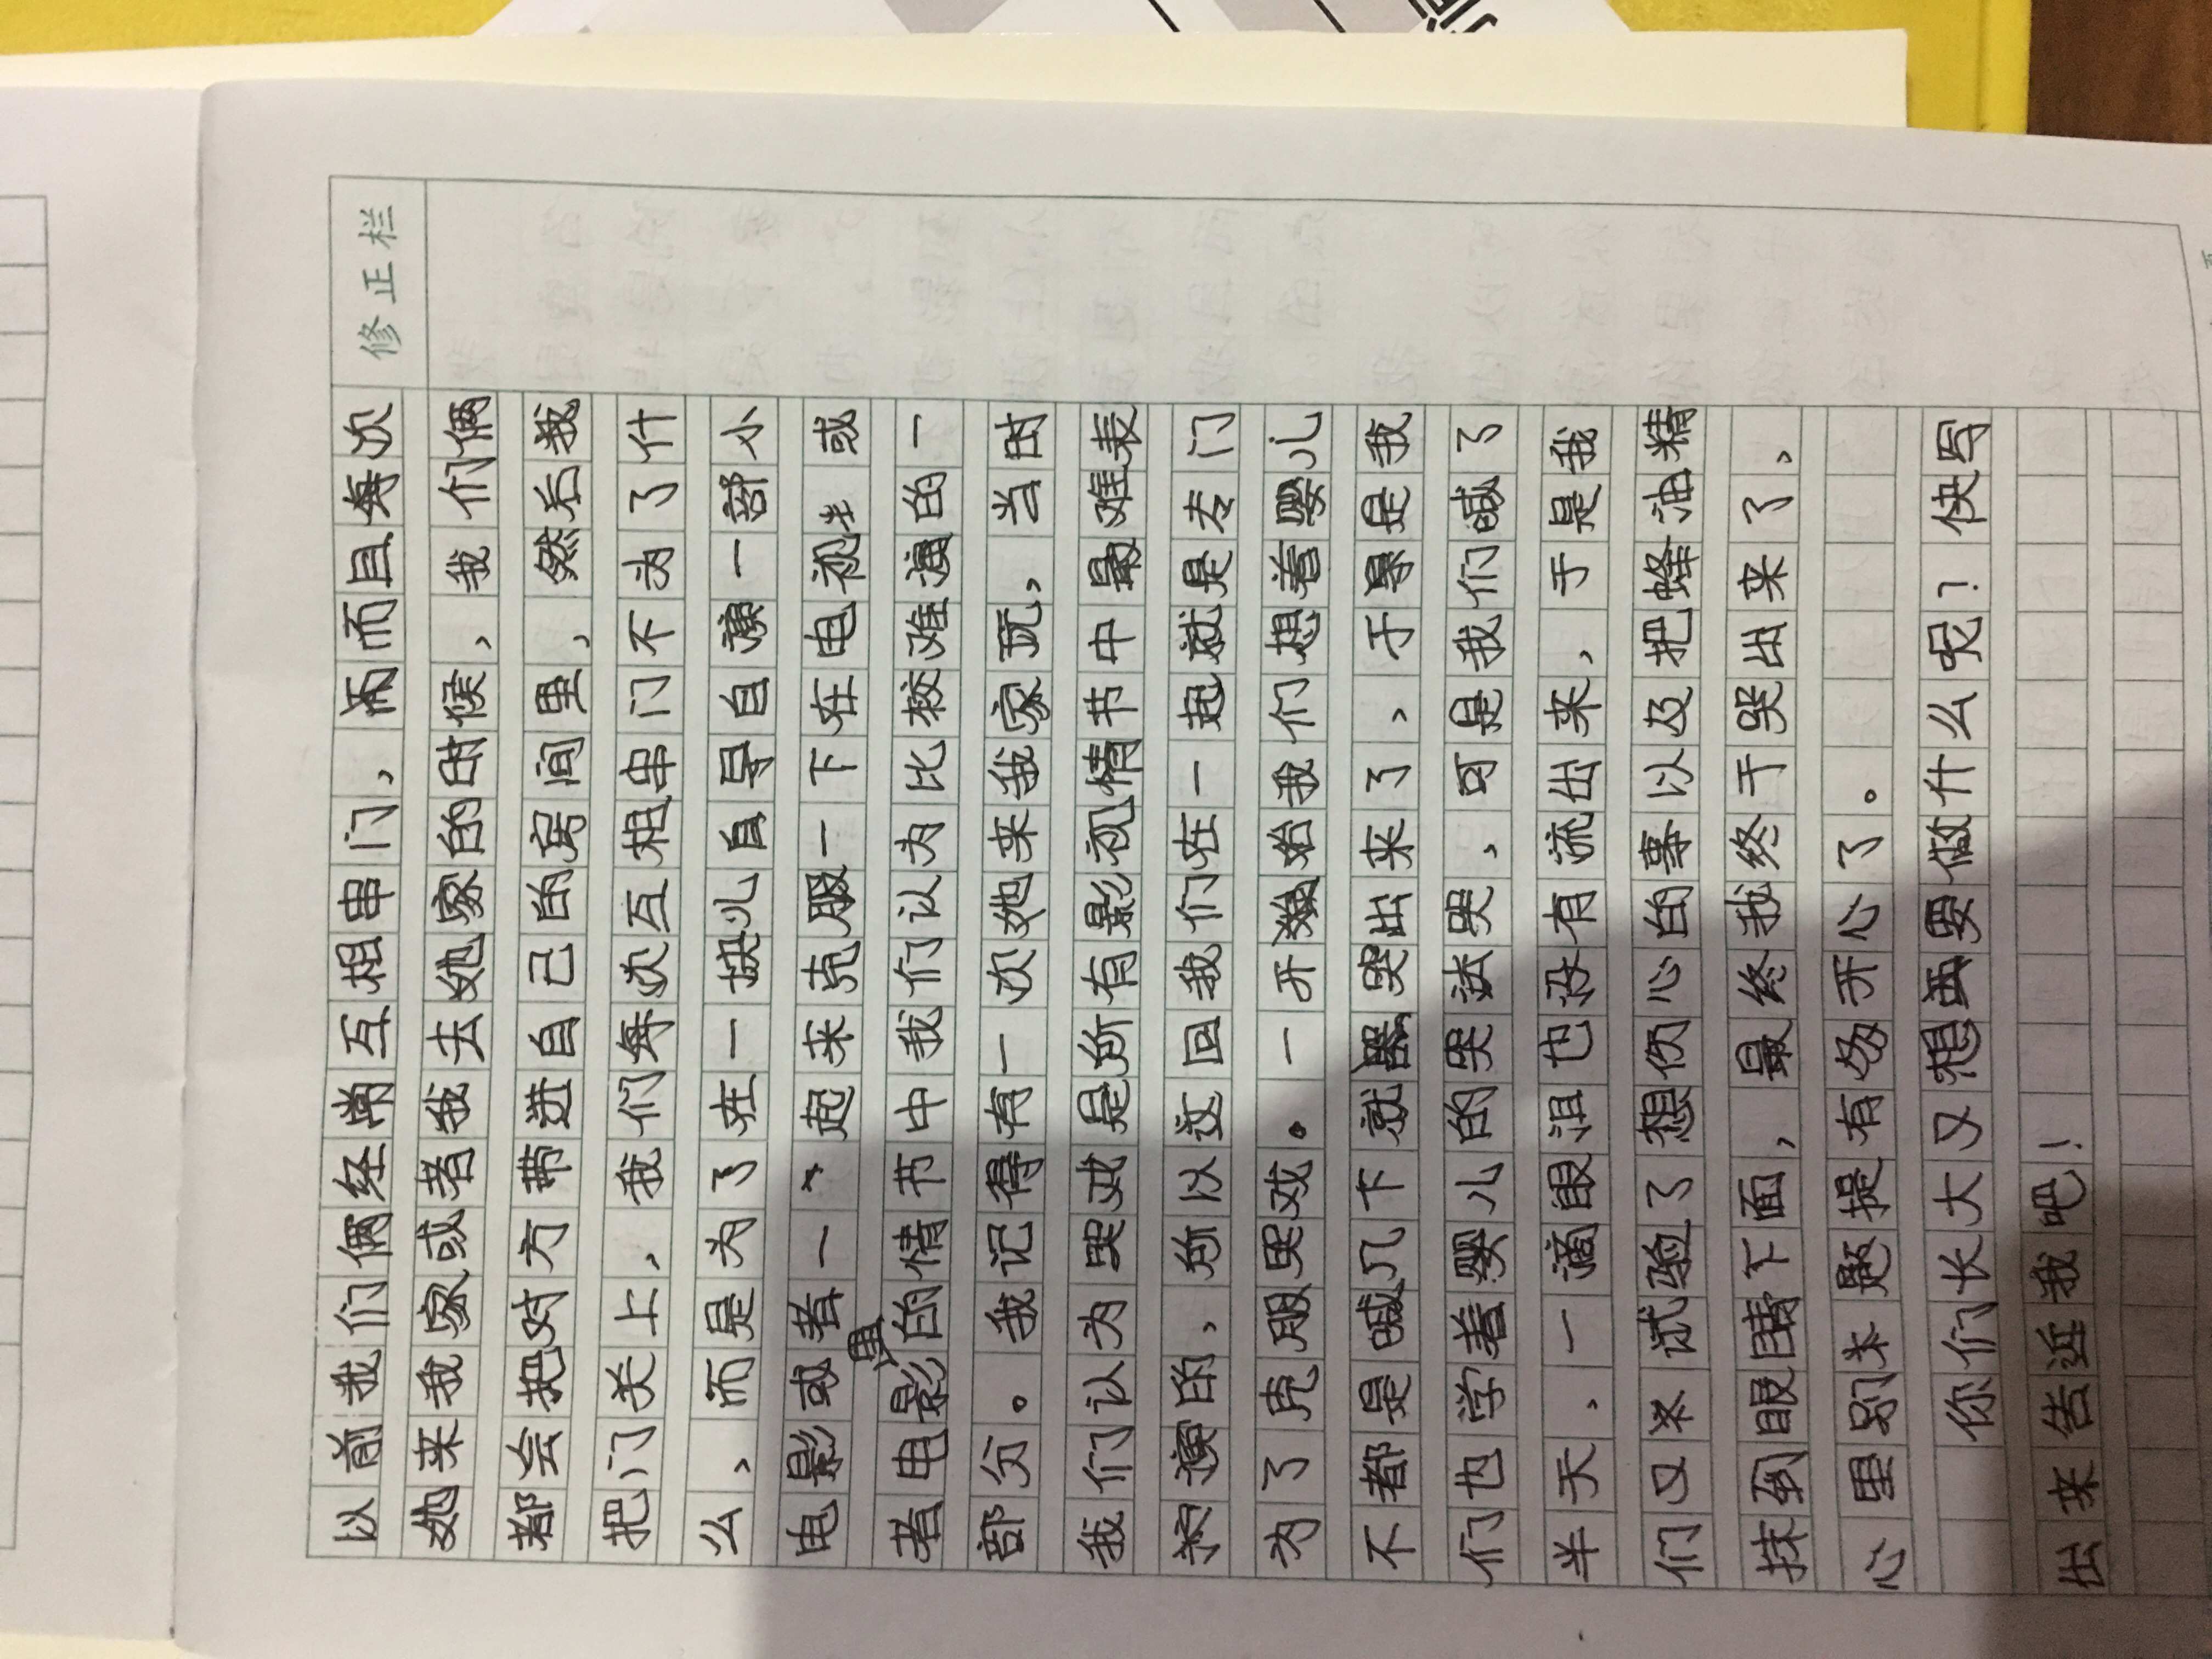 修正栏
以前我们俩经常互相串门，而而且每次
她来我家或者我去她家的时候，我们俩
都会把对方带进自己的房间里，然后我
把门关上，我们每次互相串门不为了什
么，而是为了在一块儿自导自演一部小
电影或者一起来克服一下在电视或
者电影里的情节中我们认为比较难演的一
部分。我记得有一次她来我家玩，当时
我们认为哭戏是所有影视情节中最难表
演的，所以这回我们在一起就是专门
为了克服哭戏。一开始我们想着婴儿
不都是喊几下就哭出来了，于是我
们也学着婴儿的哭法哭，可是我们喊了
半天，一滴眼泪也没有流出来，于是我
们又试验了想伤心的事以及把蜂油精
抹到眼睛下面，最终我终于哭出来了，
心里别提有多开心了。
你们长大又想要做什么呢？快写
出来告近我吧！